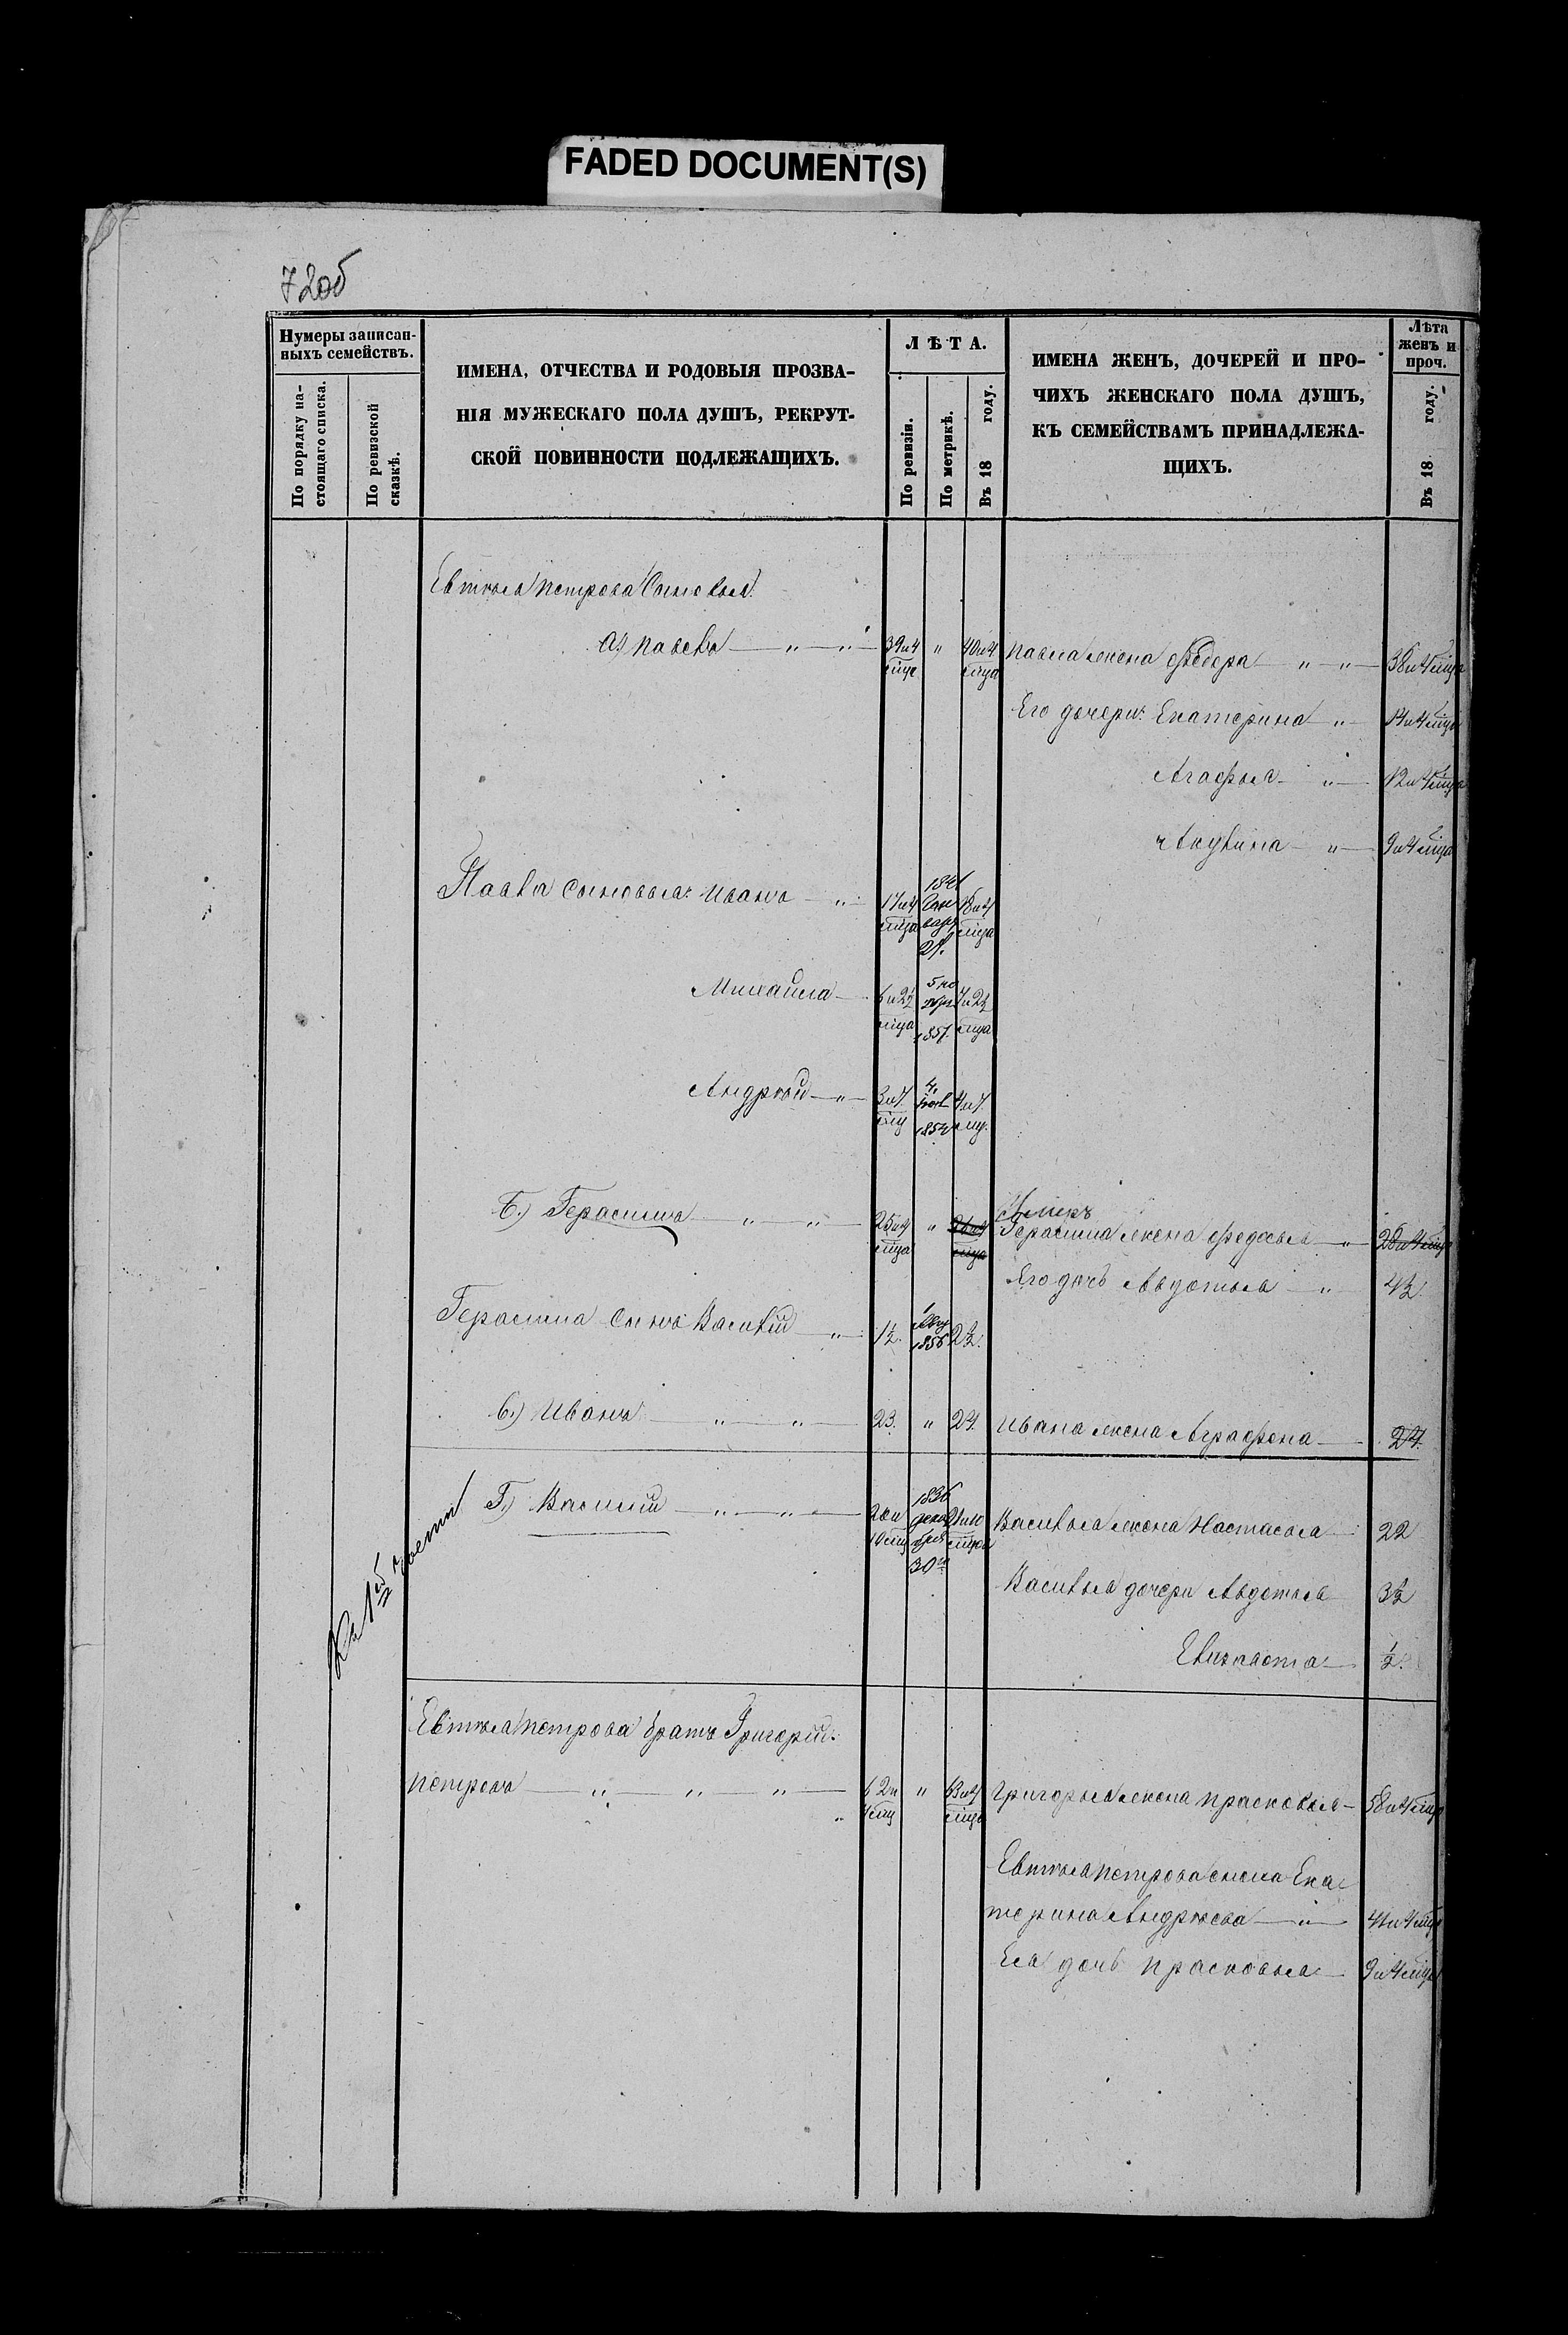 FADED DOCUMENT(S)
72об
Нумеры записан-
ныхъ семействъ.
По порядку на-
стоящаго списка.
По ревизской
сказкѣ.
ИМЕНА, ОТЧЕСТВА И РОДОВЫЯ ПРОЗВА-
НІЯ МУЖЕСКАГО ПОЛА ДУШЪ, РЕКРУТ-
СКОЙ ПОВИННОСТИ ПОДЛЕЖАЩИХЪ.
ЛѢТА.
По ревизіи.
По метрикѣ.
Въ 18 году.
ИМЕНА ЖЕНЪ, ДОЧЕРЕЙ И ПРО-
ЧИХЪ ЖЕНСКАГО ПОЛА ДУШЪ,
КЪ СЕМЕЙСТВАМЪ ПРИНАДЛЕЖА-
ЩИХЪ.
Лѣта
женъ и
проч.
Въ 18 году.
Евтѣя Петрова Сыновья
а) Павелъ — " — " — 39 и 4 мца " 40 и 4 мца Павла жена Ѳедора — " — " — 38 и 4 мца
Его дочери: Екатерина — " — 14 и 4 мца
Агафья — " — 12 и 4 мца
Акулина — " — 9 и 4 мца
Павла сыновья: Иванъ — " — 17 и 4 мца 1841 Января 18 и 4 мца
Михаила — 6 и 2½ мца 1851 7 и 2½ мца
Андрей — " — 3 и 7 мц 1854 4 и 7 мц.
Б.) Герасимъ — " — " — 25 и 4 мца " 26 и 4 мца
Умеръ
Герасима жена Федосья — " — 28 и 4 мца
Его дочь Авдотья — " — 4½
Герасима сынъ Василій — " — 1½. 1856 2½.
в.) Иванъ — " — " — 23. " 24. Ивана жена Аграфена — 24.
Къ 1й части
Г.) Василій — " — " — 20 и 10 мц 1836 декабря 30го 21 и 10 мцовъ Василья жена Настасья 22
Василья дочери Авдотья 3½
½.
Евтѣя Петрова братъ Григорій
Петровъ — " — " — " — 62 и 4 мц " 63 и 4 мца Григорья жена Прасковья — 58 и 4 мца
Евтѣя Петрова сноха Ека-
терина Андрѣева — " — 41 и 4 мца
Ея дочь Прасковья — 9 и 4 мца